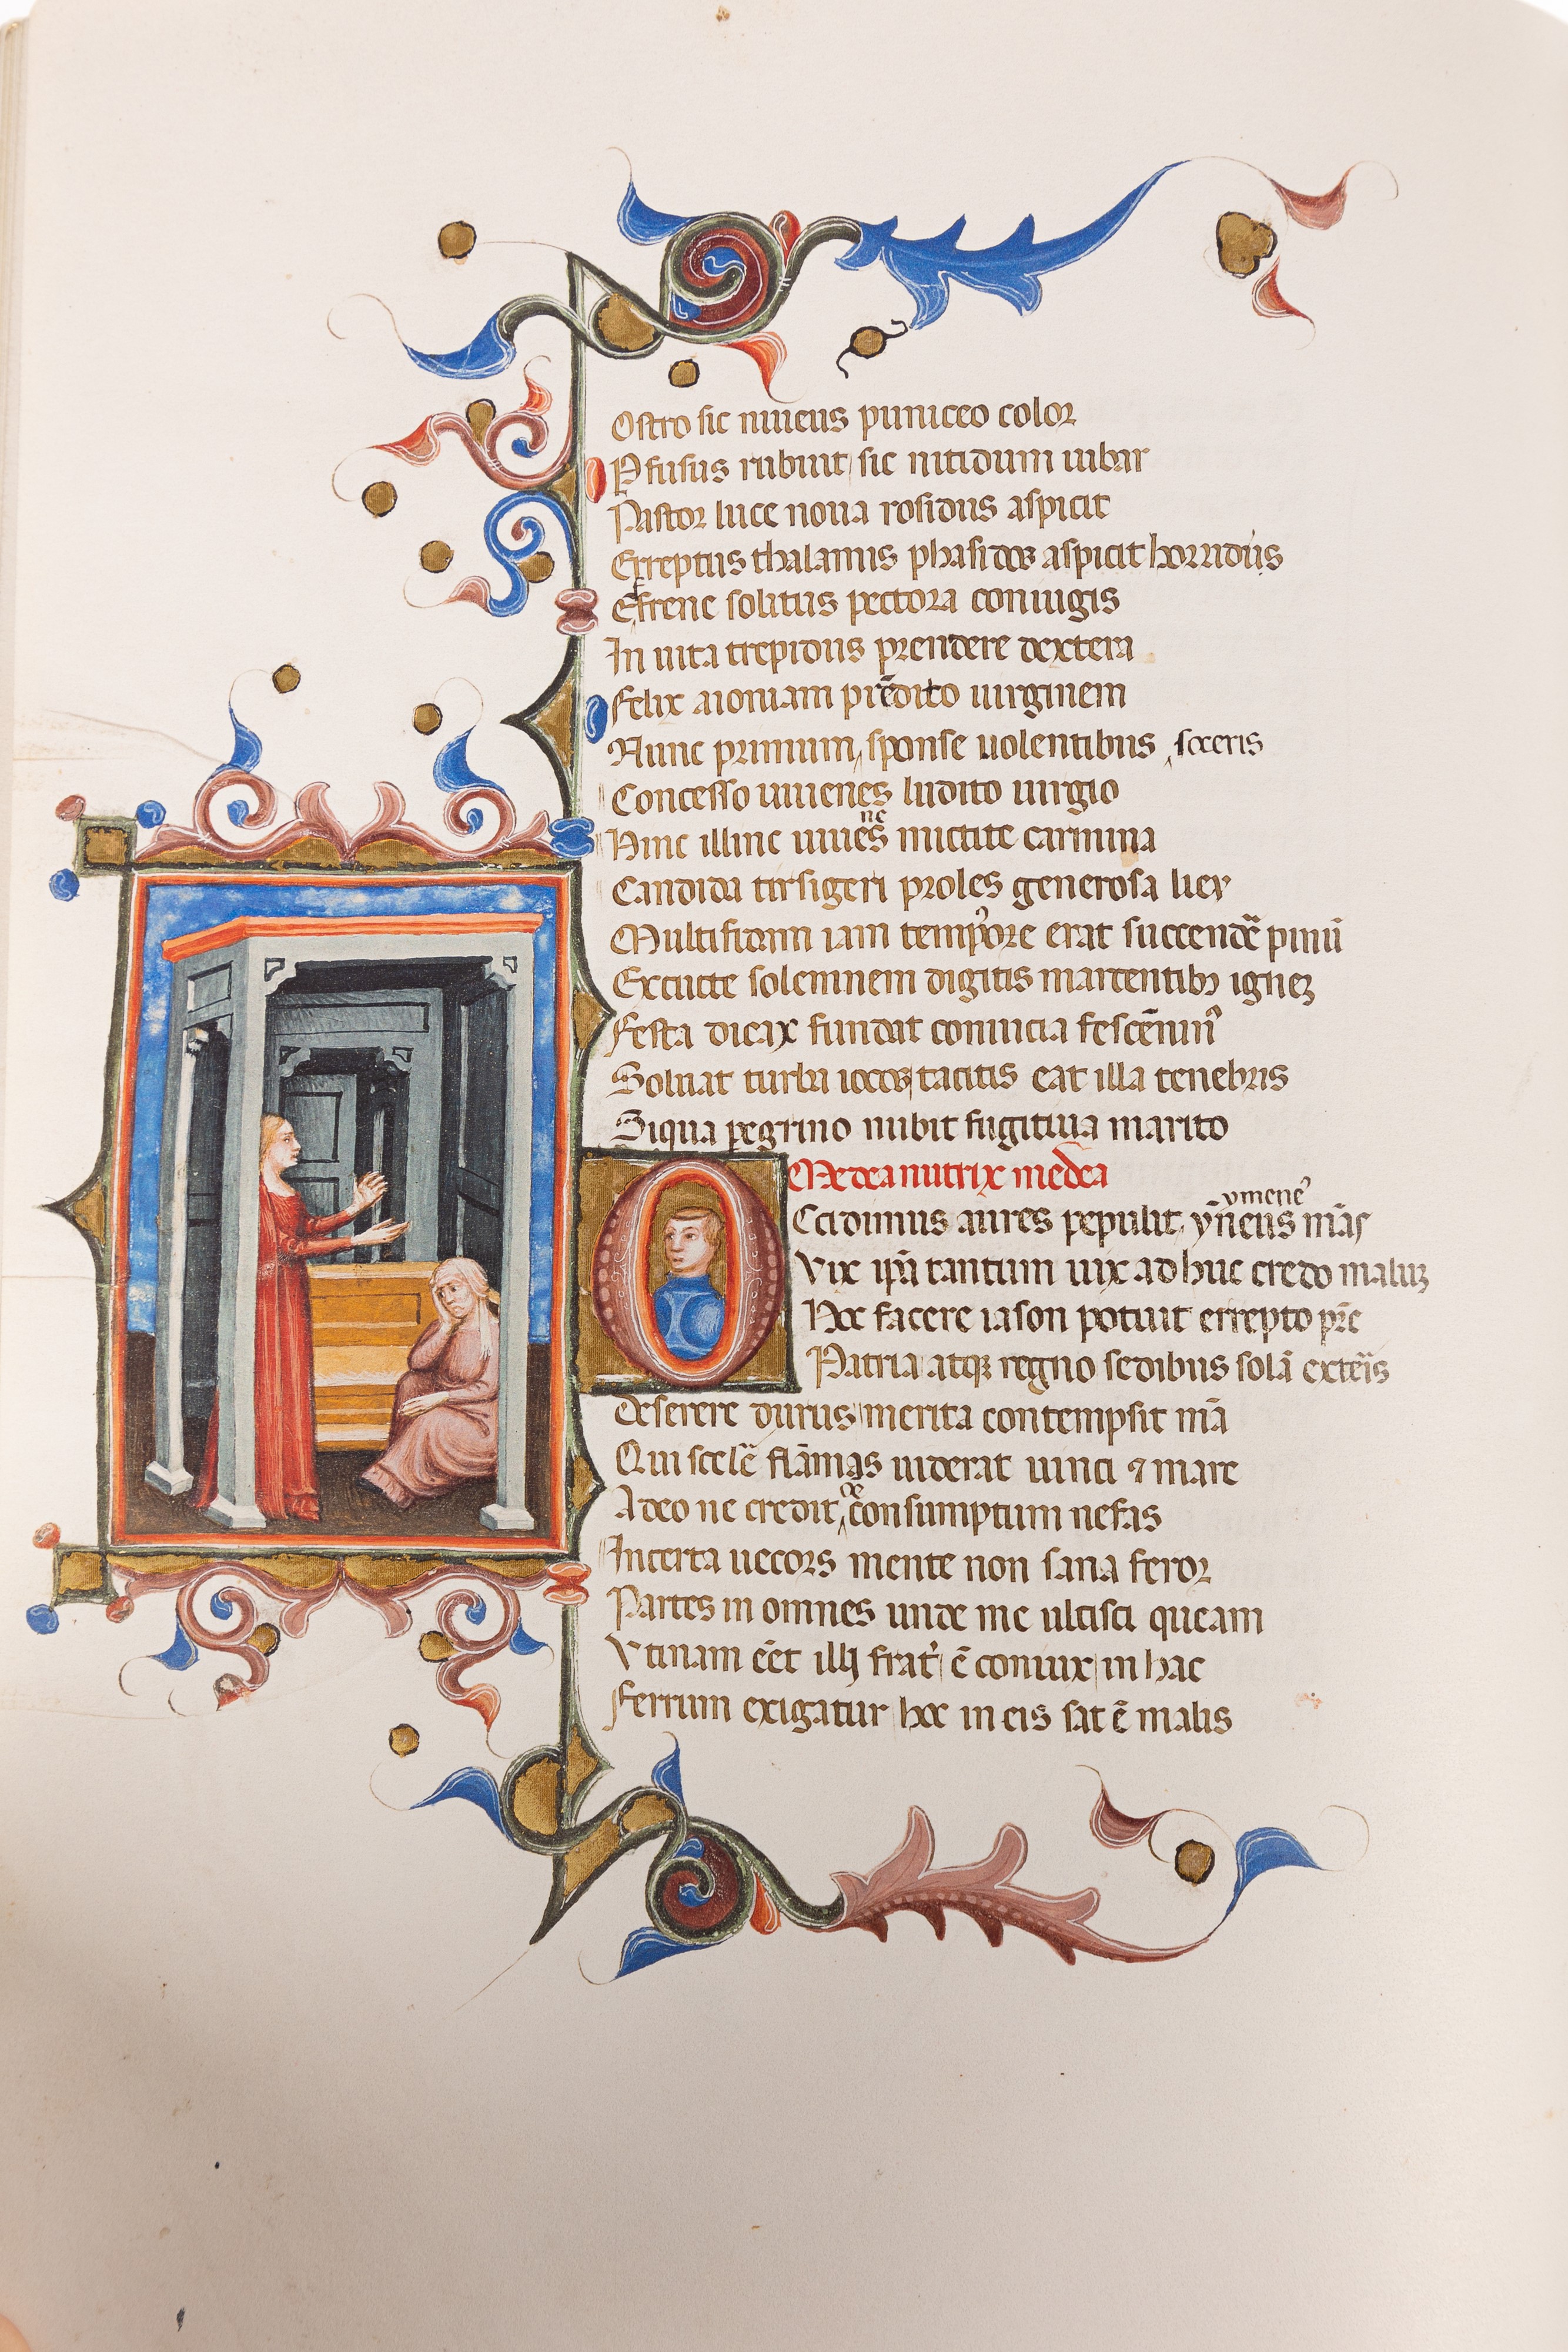 Ostro sic niueus puniceo color
Pfusus rubuit sic nitidum iubar
Pastor luce noua rosidus aspicit
Erreptus thalamis phasidos aspicit horridus
Efrene solitus pectora coniugis
In uita trepidus prendere dextera
Felix aioniam prēdito uirginem
Nunc primum sponse uolentibus soceris
Concesso iuuenes ludito iurgio
Hinc illinc iuuēs mictite carmina
ne
Candida tirsigeri proles generosa liey
Multifidam iam tempore erat succendē pinū
Excucte solemnem digitis marcentibꝫ igneꝫ
Festa dicax fundat conuicia fescēnin9
Soluat turba iocos tacitis eat illa tenebris
Siqua pegrino nubit fugitiua marito
Medea nutrix medea
Occidimus aures pepulit yn̄eus mās
ymene9
Vix ipā tantum uix ad huc credo maluꝫ
Hoc facere iason potuit errepto pr̄e
Patria atqꝫ regno sedibus solā exteīs
Deserere durus merita contempsit mā
Qui scelē flāmas uiderat uinci ⁊ mare
Adeo ne credit de consumptum nefas
Incerta uecors mente non sana feror
Partes in omnes unde me ulcisci queam
Vtinam ēet illj frat' ē coniux in hac
Ferrum exigatur hoc in eis sat ē malis